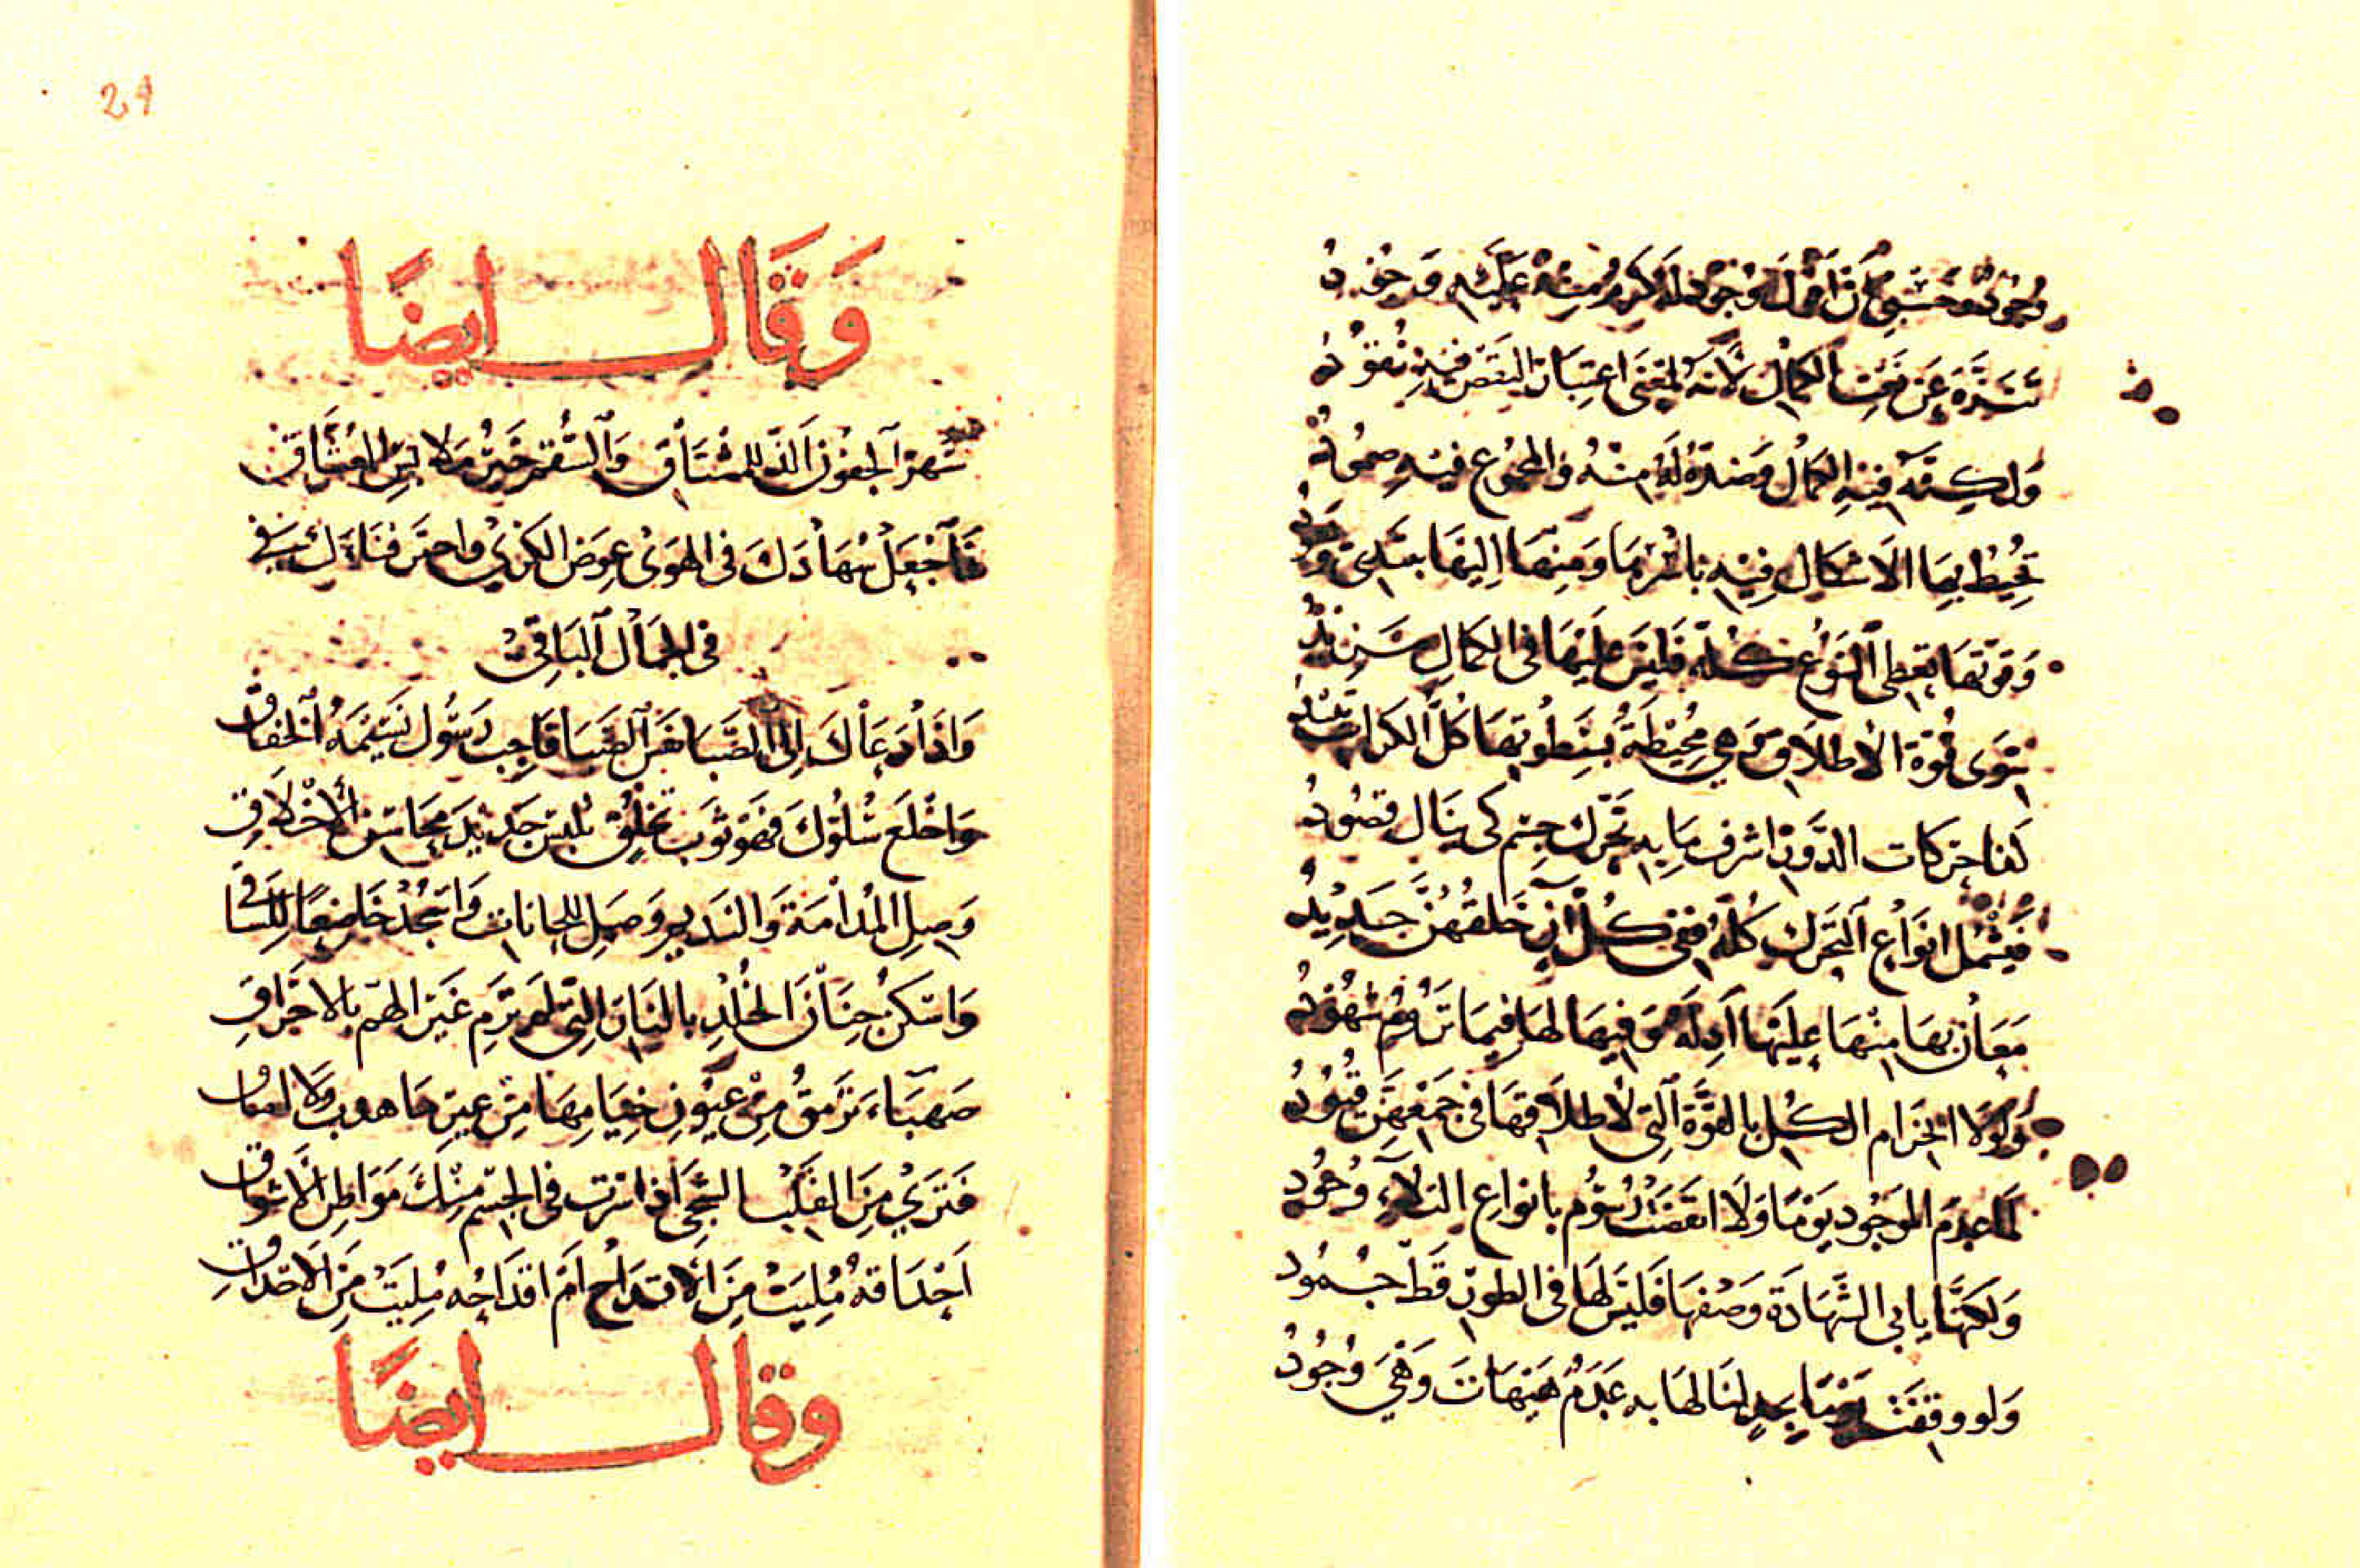 تنزه عن نعت الكمال لانه لمعنى اعتبار النقص فيه
ولكنه فيه الكمال وضده له منه والمجموع فيه
تحيط بها الاشكال فيه باسرها ومنها اليها
وقوتها تعطى النوع كله فليس عليها فى الكمال
سوى قوة الاطلاق وهي محيطة بسطوتها كل الكرات
كذا حركات الدور اشرف ما به تحرك جسم كى ينال قصود
فيشمل انواع التحرك كله ففى كل آن خلقهن جديد
معان بها منها عليها ادلة وفيها لها فيما تروم شهود
ولولا انخرام الكل بالقوة التى لاطلاقها فى جمعهن قيود
لما عدم الموجود يوما ولا انقضت رسوم بانواع البلاء وجود
ولكنها يابى الشهادة وصفها فليس لها فى الطور قط جمود
ولو وقفت لنا لها به عدم هيهات وهي وجود
21
وقال ايضا
سهر الجفون الذ للمشتاق والسقم خير ملابس العشاق
فاجعل سهادك فى الهوى عوض الكرى واحسر فناءك
فى الجمال الباقى
واذا دعاك الى الصبا نفس الصبا فاجب رسول نسيمه الخفاق
واخلع سلوك فهو ثوب مخلق والبس جديد محاسن الاخلاق
وصل المدامة والنديم وصل للحانات واسجد خاضعا للساقى
واسكن جنان الخلد بالنار التى لم ترم غير الهم بالاحراق
صهباء ترمق من عيون خيامها من عين
فترى من الفلك الشجى اذا سرت فى الجسم منك مواطن الاشواق
احداقه مليت من الاقداح ام اقداحه مليت من الاحداق
وقال ايضا